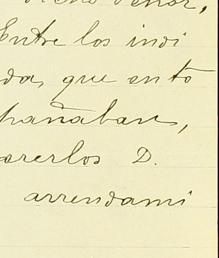 Entre los indi
da, que en to
pañaban,
arerlos D.
arrendami